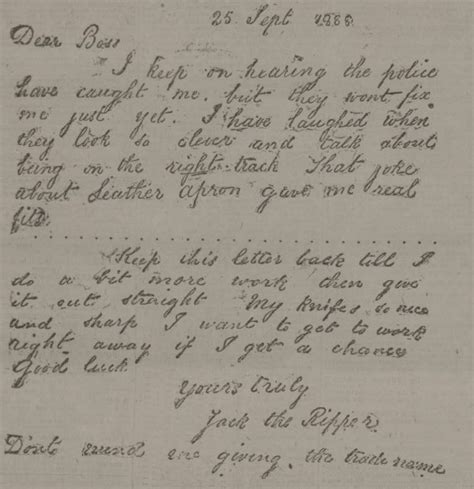 25 Sept 1888.
Dear Boss
I keep on hearing the police
have caught me. but they wont fix
me just yet. I have laughed when
they look so clever and talk about
being on the right track That joke
about Leather apron gave me real
fits.
Keep this letter back till I
do a bit more work then give
it out straight My knifes so nice
and sharp I want to get to work
right away if I get a chance
Good luck
Yours truly
Jack the Ripper
Dont mind me giving the trade name